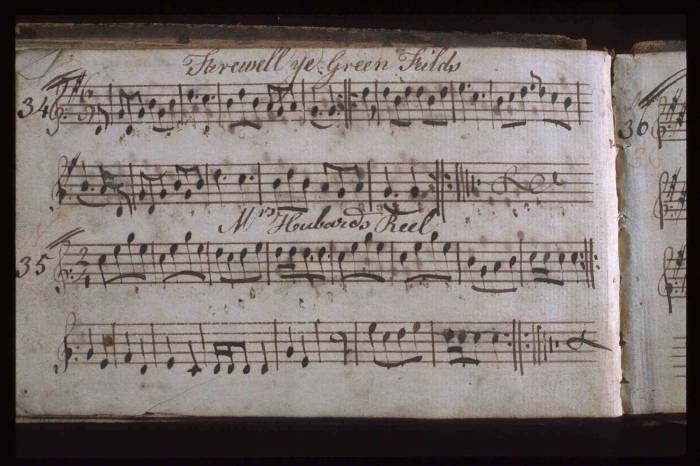 Farewell ye Green Feilds
34
6
8
36
Mrs Hubards Reel
35
2
4